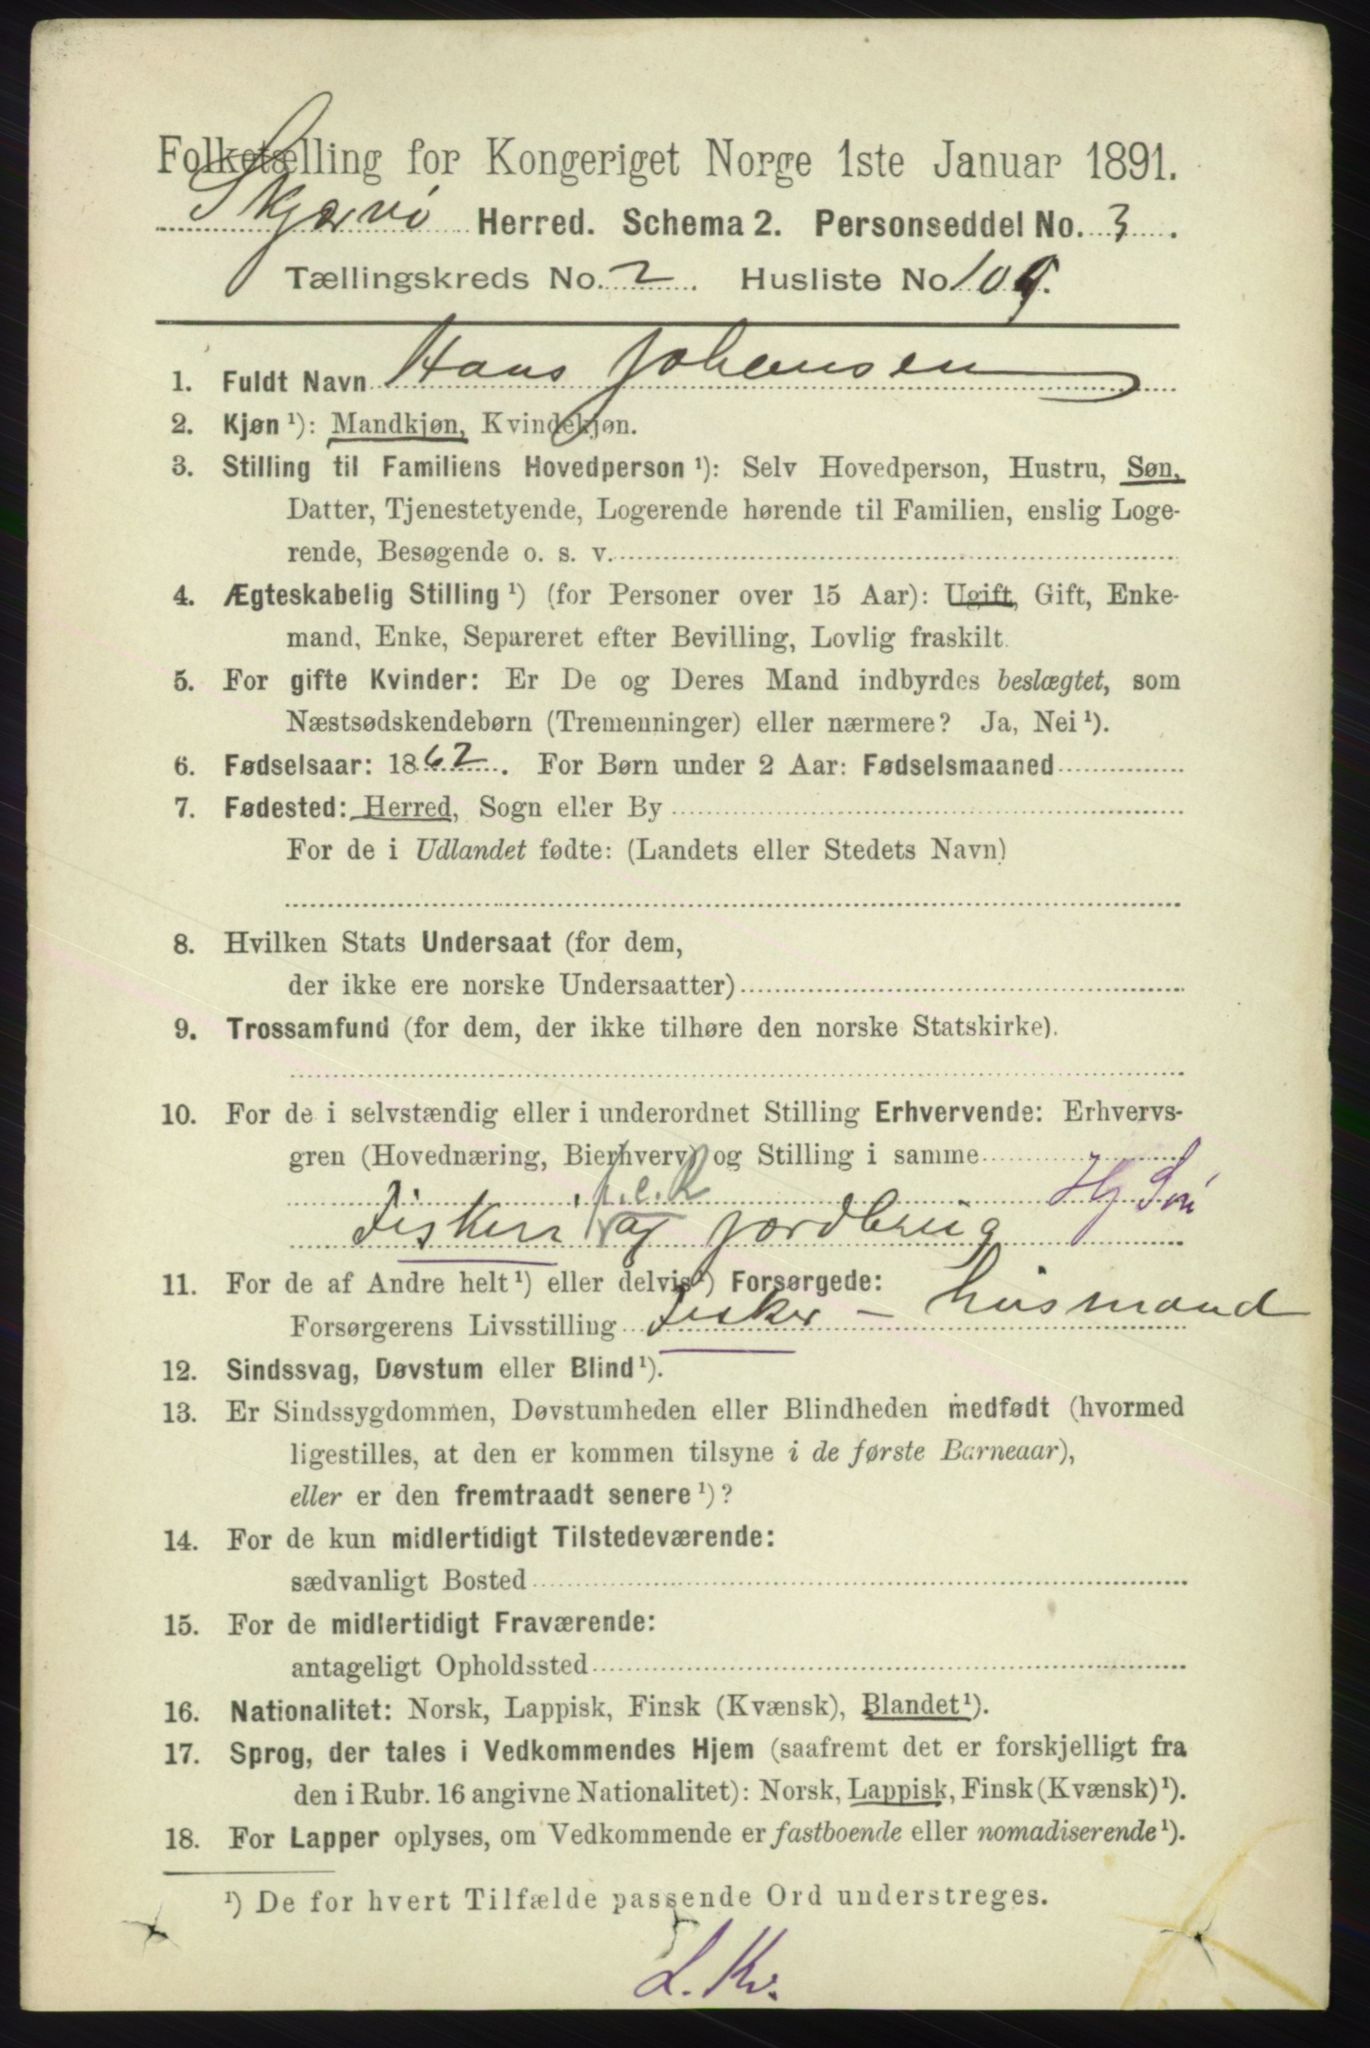 Folketælling for Kongeriget Norge 1ste Januar 1891.
Skjærvø Herred. Schema 2. Personseddel No. 3.
Tællingskreds No. 2. Husliste No 109.
1. Fuldt Navn Hans Johansen
2. Kjøn ¹): Mandkjøn, Kvindekjøn.
3. Stilling til Familiens Hovedperson ¹): Selv Hovedperson, Hustru, Søn,
Datter, Tjenestetyende, Logerende hørende til Familien, enslig Loge-
rende, Besøgende o. s. v.
4. Ægteskabelig Stilling ¹) (for Personer over 15 Aar): Ugift, Gift, Enke-
mand, Enke, Separeret efter Bevilling, Lovlig fraskilt.
5. For gifte Kvinder: Er De og Deres Mand indbyrdes beslægtet, som
Næstsødskendebørn (Tremenninger) eller nærmere? Ja, Nei ¹).
6. Fødselsaar: 1862. For Børn under 2 Aar: Fødselsmaaned
7. Fødested: Herred, Sogn eller By
For de i Udlandet fødte: (Landets eller Stedets Navn)
8. Hvilken Stats Undersaat (for dem,
der ikke ere norske Undersaatter)
9. Trossamfund (for dem, der ikke tilhøre den norske Statskirke).
10. For de i selvstændig eller i underordnet Stilling Erhvervende: Erhvervs-
gren (Hovednæring, Bierhverv) og Stilling i samme
Hj Søn
Fiskeri og jordbrug
11. For de af Andre helt ¹) eller delvis ¹) Forsørgede:
Forsørgerens Livsstilling Fisker - husmand
12. Sindssvag, Døvstum eller Blind ¹).
13. Er Sindssygdommen, Døvstumheden eller Blindheden medfødt (hvormed
ligestilles, at den er kommen tilsyne i de første Barneaar),
eller er den fremtraadt senere ¹)?
14. For de kun midlertidigt Tilstedeværende:
sædvanligt Bosted
15. For de midlertidigt Fraværende:
antageligt Opholdssted
16. Nationalitet: Norsk, Lappisk, Finsk (Kvænsk), Blandet ¹).
17. Sprog, der tales i Vedkommendes Hjem (saafremt det er forskjelligt fra
den i Rubr. 16 angivne Nationalitet): Norsk, Lappisk, Finsk (Kvænsk) ¹).
18. For Lapper oplyses, om Vedkommende er fastboende eller nomadiserende ¹).
¹) De for hvert Tilfælde passende Ord understreges.
L. Kv.